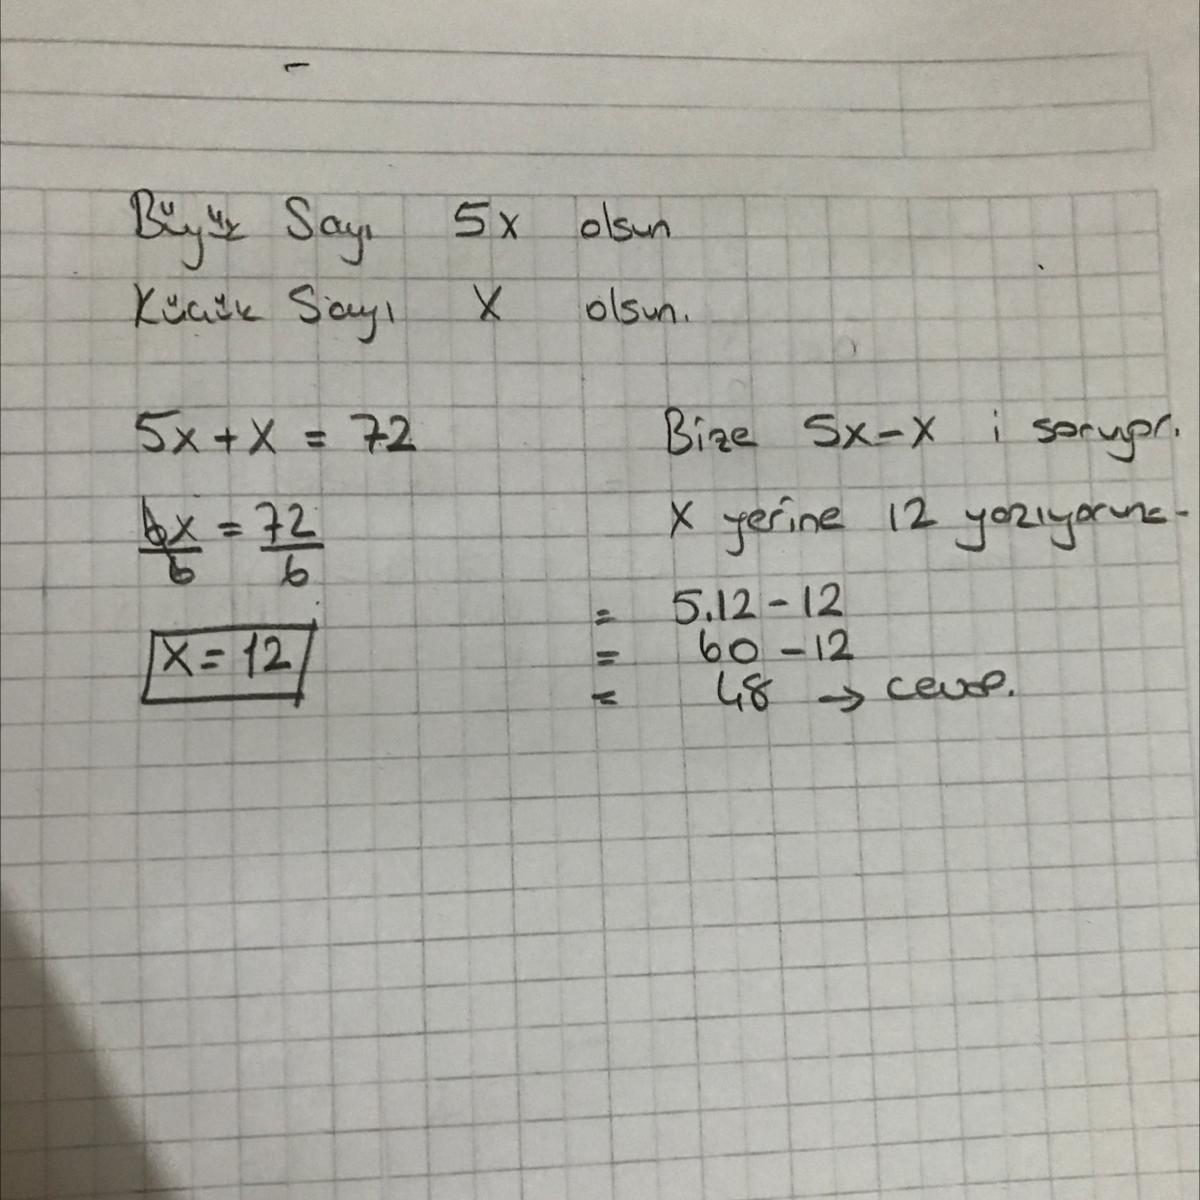 Büyük Sayı 5x olsun
Küçük Sayı x olsun.
5x + x = 72
6x/6 = 72/6
x = 12
Bize 5x - x i soruyor.
x yerine 12 yazıyoruz.
= 5.12 - 12
= 60 - 12
= 48 → cevap.